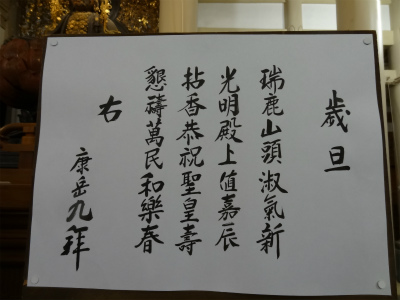 歳旦
瑞鹿山頭淑氣新
光明殿上値嘉辰
拈香恭祝聖皇壽
懇禱萬民和樂春
右
康岳九拜